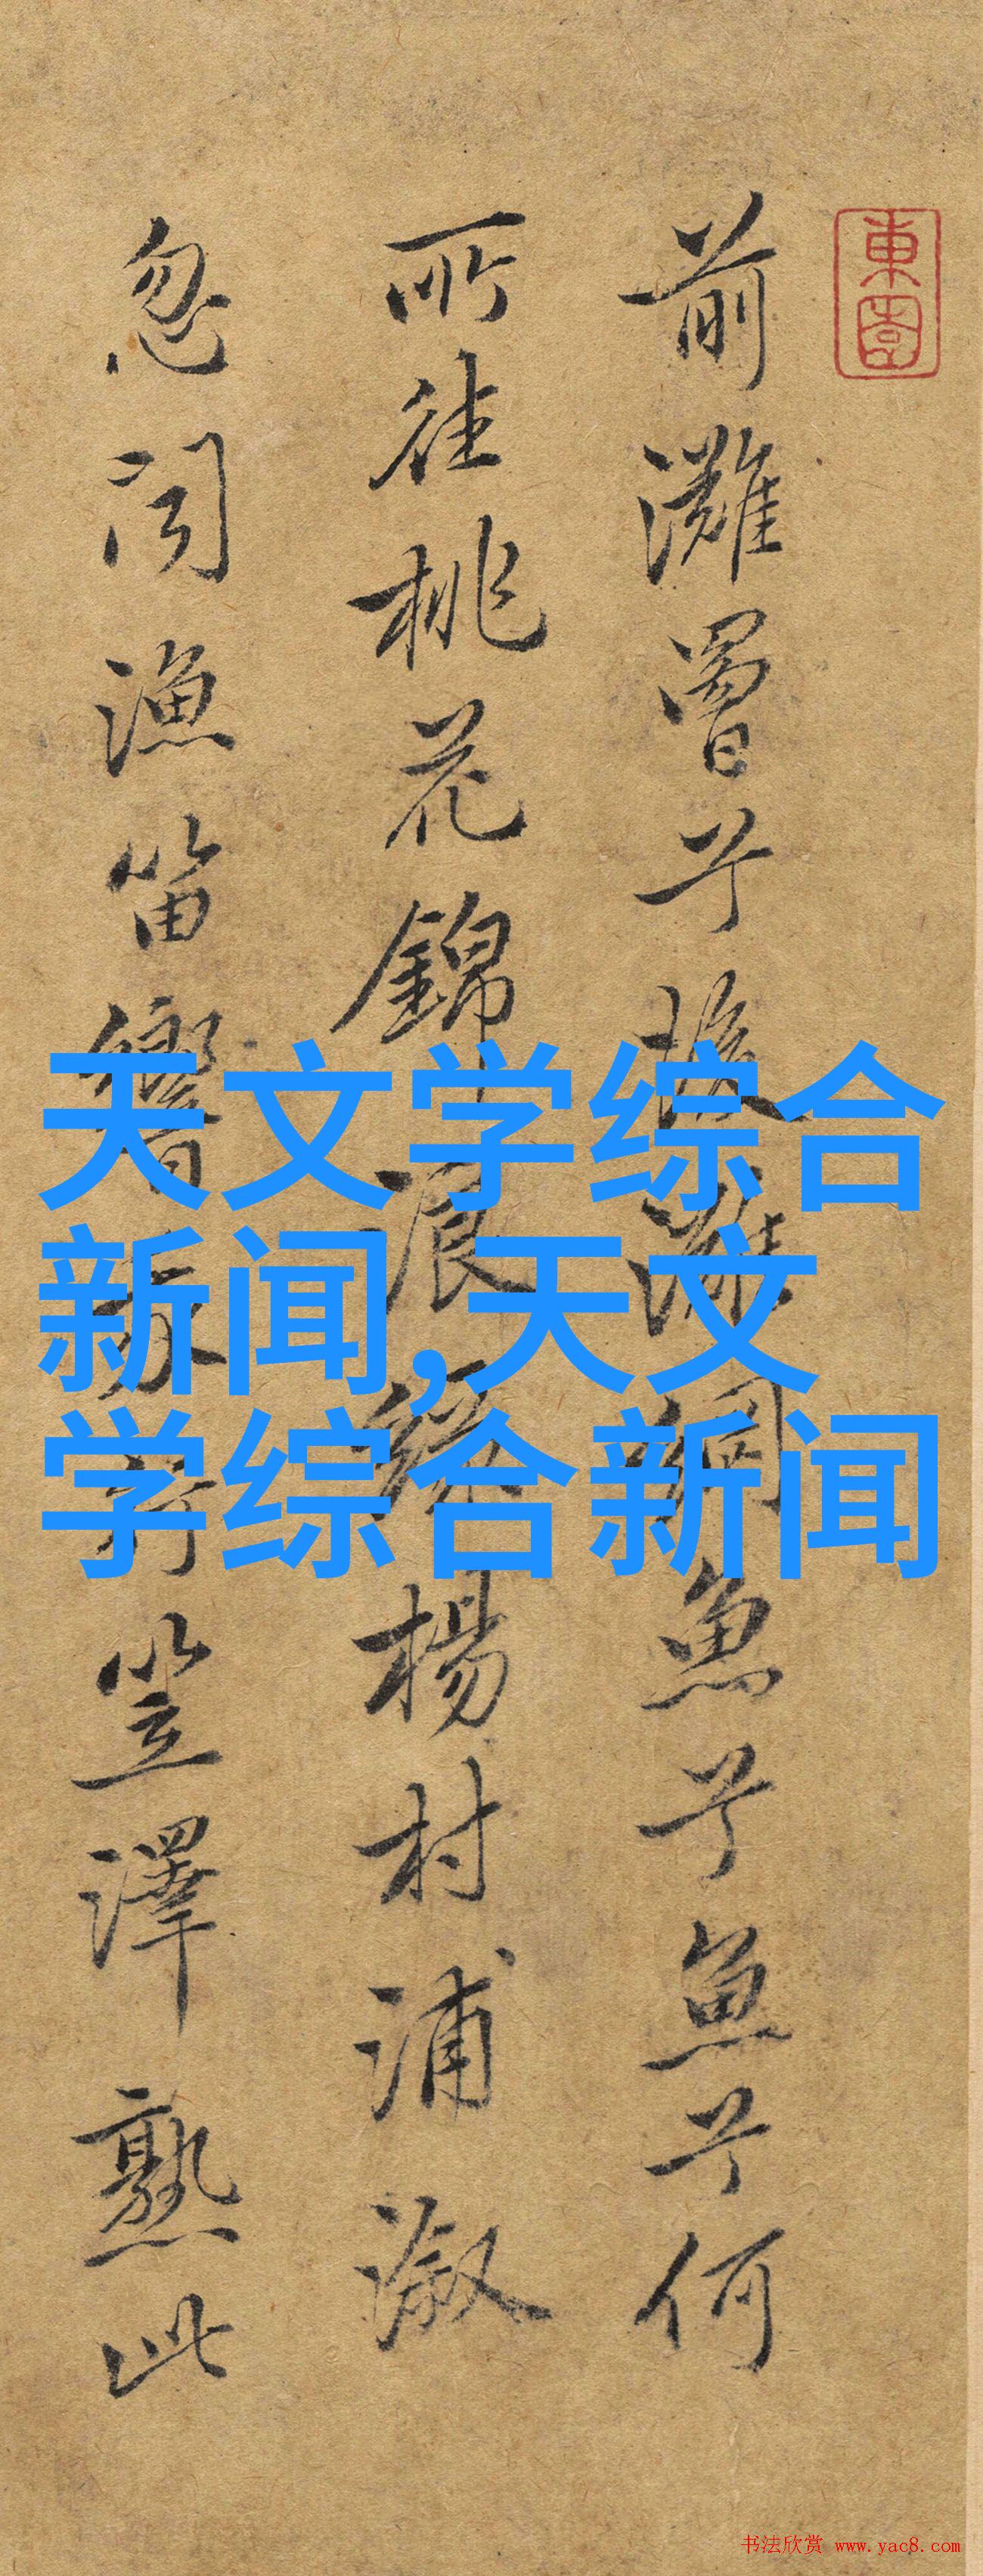 東園
前灘罾兮後灘網魚兮魚兮何
所往桃花錦浪綠楊村浦溆
忽闻漁笛響
笠澤熟此
天文学综合
新闻,天文
学综合新闻
书法欣赏 www.yac8.com